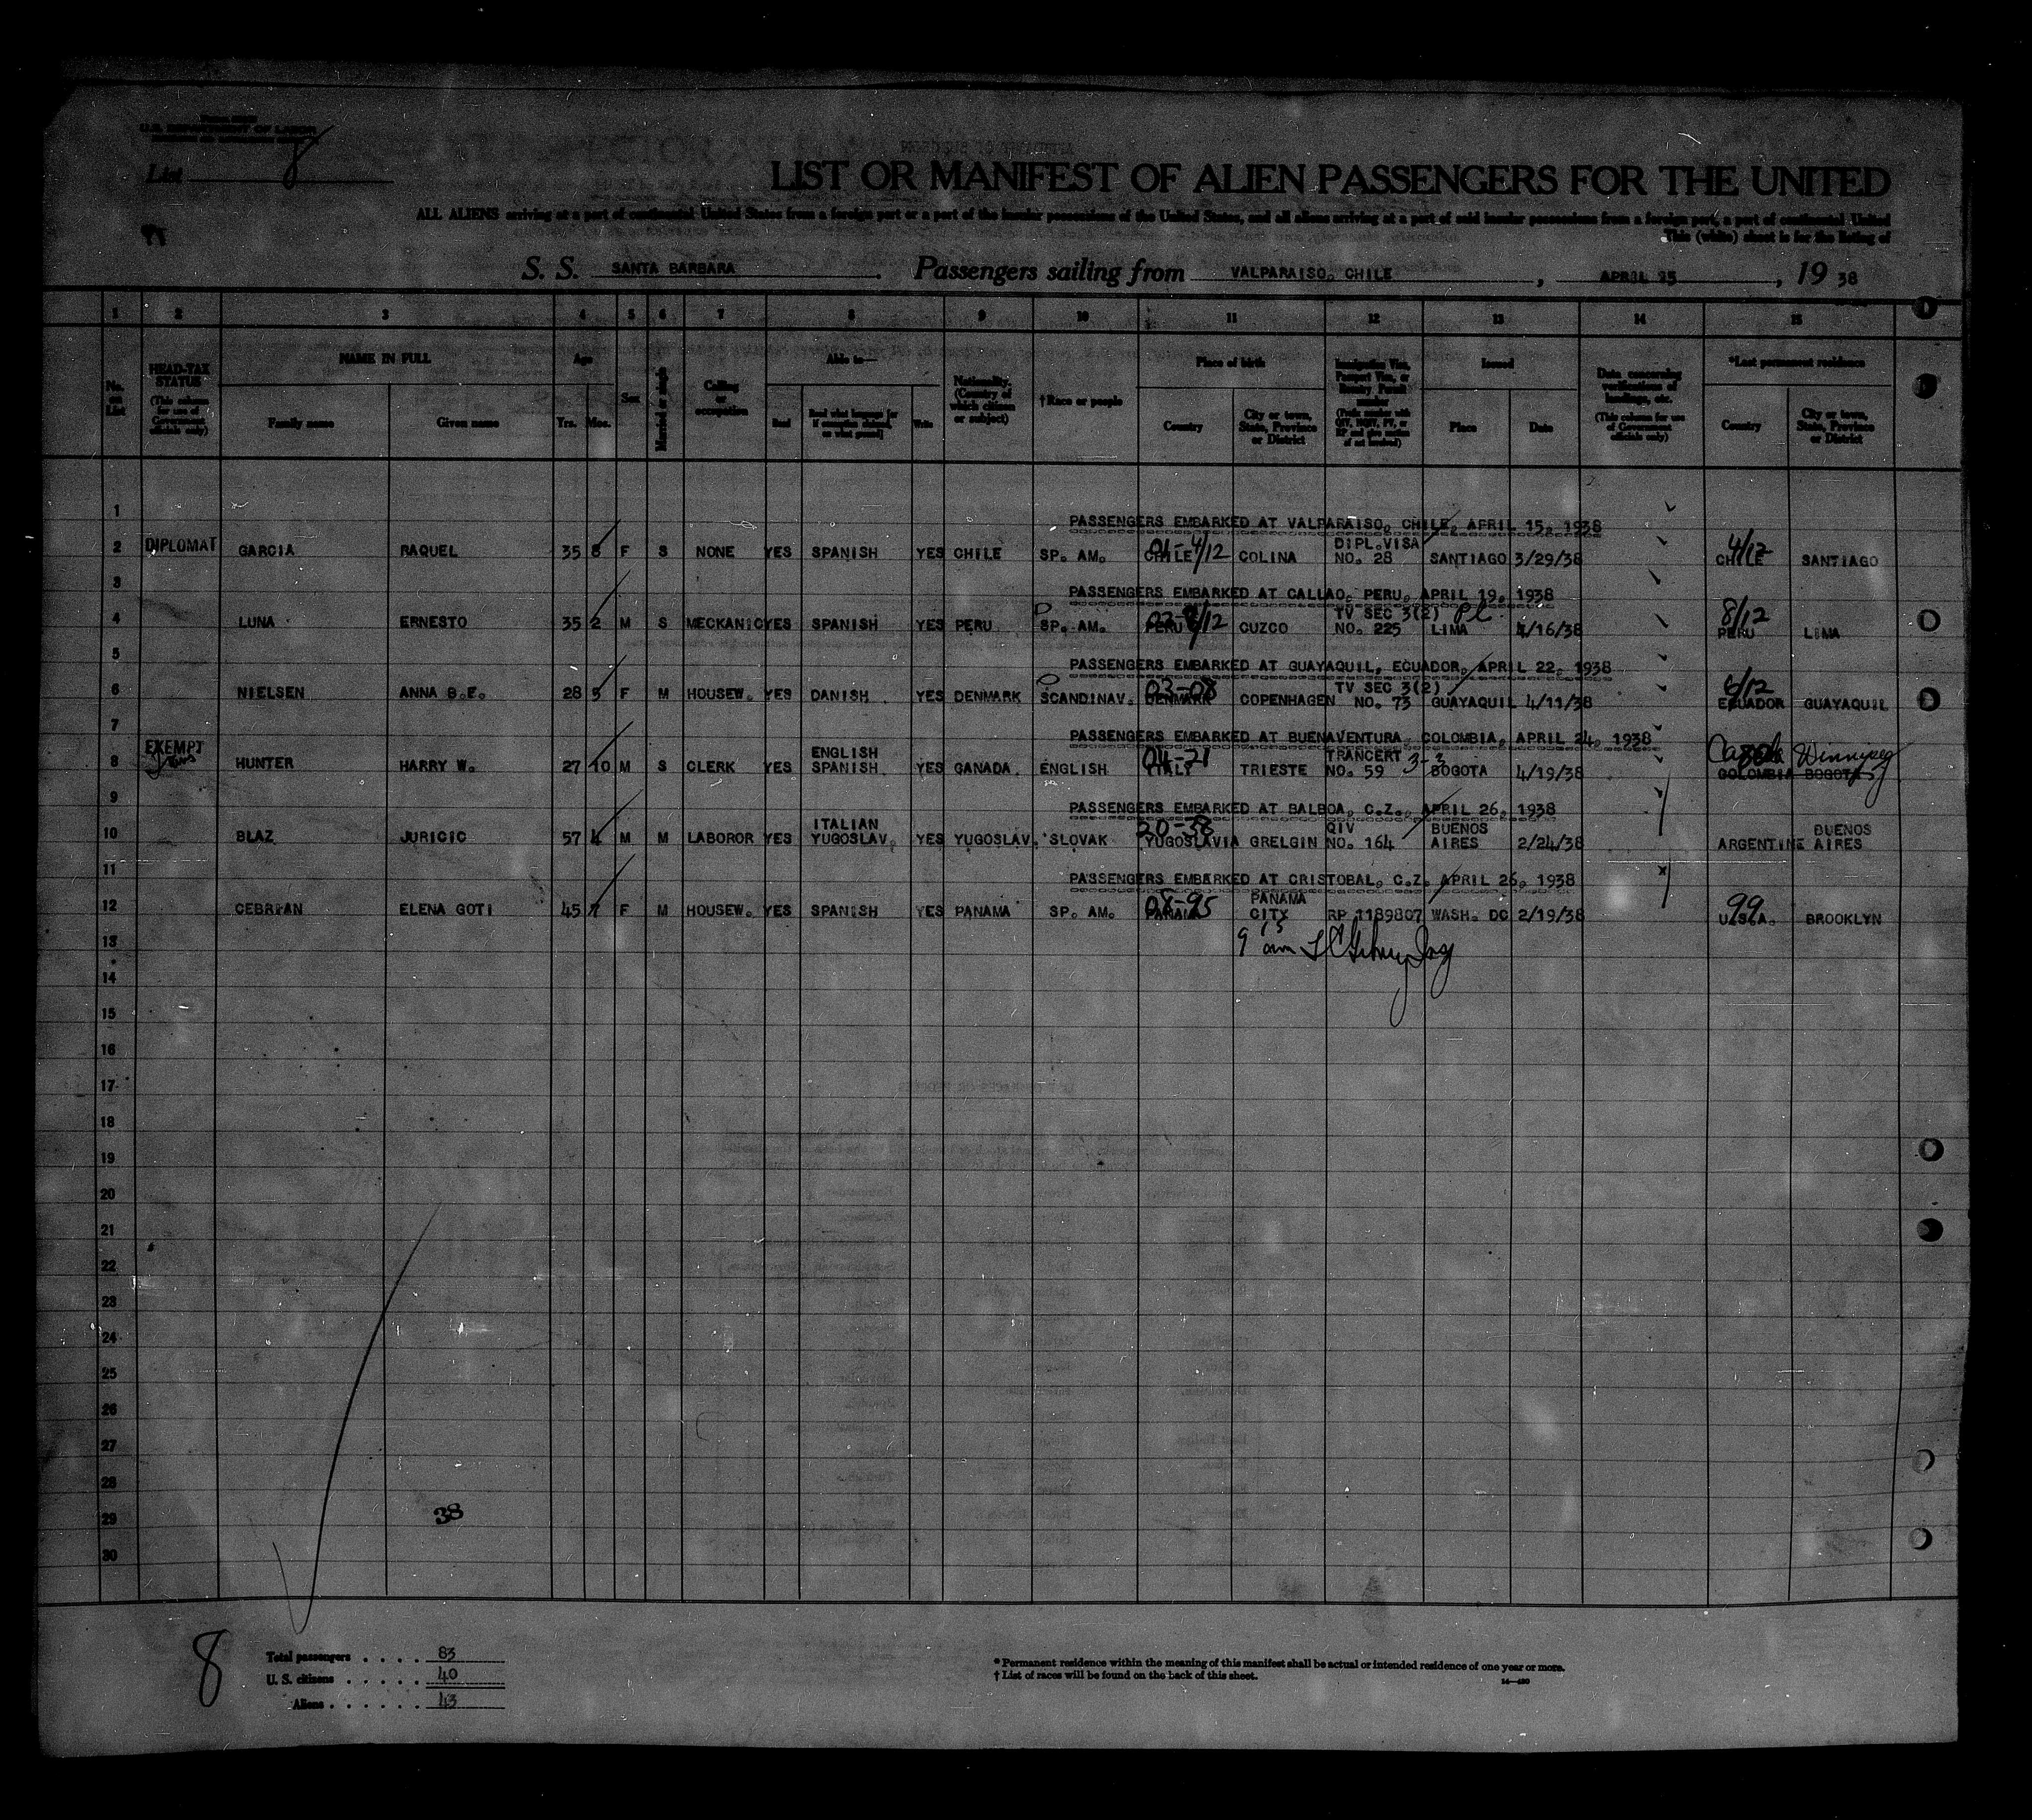 U.S. DEPARTMENT OF LABOR
List 8
LIST OR MANIFEST OF ALIEN PASSENGERS FOR THE UNITED
ALL ALIENS arriving at a port of continental United States from a foreign port or a port of the insular possessions of the United States, and all aliens arriving at a port of said insular possessions from a foreign port, a port of continental United
This (white) sheet is for the listing of
S. S. SANTA BARBARA. Passengers sailing from VALPARAISO, CHILE, APRIL 15, 19 38
1 2 3 4 5 6 7 8 9 10 11 12 13 14 15
No. on List
HEAD-TAX STATUS (This column for use of Government officials only)
NAME IN FULL
Family name Given name
Age
Yrs. Mos.
Sex
Married or single
Calling or occupation
Able to—
Read Read what language [or if exemption claimed, on what ground] Write
Nationality. (Country of which citizen or subject)
†Race or people
Place of birth
Country City or town, State, Province or District
Immigration Visa, Passport Visa, or Reentry Permit number (Prefix number with QIV, NQIV, PV, or RP and give section of act involved)
Issued
Place Date
Data concerning verifications of landings, etc. (This column for use of Government officials only)
*Last permanent residence
Country City or town, State, Province or District
1 PASSENGERS EMBARKED AT VALPARAISO, CHILE, APRIL 15, 1938
2 DIPLOMAT GARCIA RAQUEL 35 8 F S NONE YES SPANISH YES CHILE SP. AM. CHILE 4/12 COLINA DIPL.VISA NO. 28 SANTIAGO 3/29/38 4/12 CHILE SANTIAGO
3 PASSENGERS EMBARKED AT CALLAO, PERU, APRIL 19, 1938
4 LUNA ERNESTO 35 2 M S MECKANIC YES SPANISH YES PERU SP. AM. PERU CUZCO TV SEC 3(2) NO. 225 LIMA 4/16/38 8/12 PERU LIMA
5 PASSENGERS EMBARKED AT GUAYAQUIL, ECUADOR, APRIL 22, 1938
6 NIELSEN ANNA B.E. 28 5 F M HOUSEW. YES DANISH YES DENMARK SCANDINAV. 03-08 DENMARK COPENHAGEN TV SEC 3(2) NO. 73 GUAYAQUIL 4/11/38 6/12 ECUADOR GUAYAQUIL
7 PASSENGERS EMBARKED AT BUENAVENTURA, COLOMBIA, APRIL 24, 1938
8 EXEMPT HUNTER HARRY W. 27 10 M S CLERK YES ENGLISH SPANISH YES CANADA ENGLISH 04-21 ITALY TRIESTE TRANCERT NO. 59 3-3 BOGOTA 4/19/38 Canada Winnipeg COLOMBIA BOGOTA
9 PASSENGERS EMBARKED AT BALBOA, C.Z., APRIL 26, 1938
10 BLAZ JURICIC 57 4 M M LABOROR YES ITALIAN YUGOSLAV. YES YUGOSLAV. SLOVAK 20-38 YUGOSLAVIA GRELGIN QIV NO. 164 BUENOS AIRES 2/24/38 ARGENTINE BUENOS AIRES
11 PASSENGERS EMBARKED AT CRISTOBAL, C.Z. APRIL 26, 1938
12 CEBRIAN ELENA GOTI 45 7 F M HOUSEW. YES SPANISH YES PANAMA SP. AM. 08-95 PANAMA PANAMA CITY RP 1189807 WASH. DC 2/19/38 99 U.S.A. BROOKLYN
13 9 15 am
14
15
16
17
18
19
20
21
22
23
24
25
26
27
28
29 38
30
8
Total passengers . . . . 83
U. S. citizens . . . . . 40
Aliens . . . . . . 43
* Permanent residence within the meaning of this manifest shall be actual or intended residence of one year or more.
† List of races will be found on the back of this sheet.